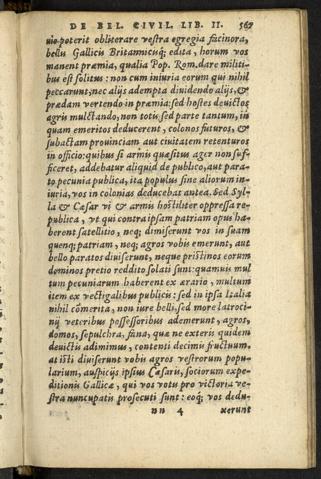 DE BEL. CIVIL. LIB. II. 567
uio poterit obliterare vestra egregia facinora,
bello Gallicis Britannicisq; edita, horum vos
manent præmia, qualia Pop. Rom. dare militi-
bus est solitus: non cum iniuria eorum qui nihil
peccarunt; nec alijs adempta diuidendo alijs, &
prædam vertendo in præmia: sed hostes deuictos
agris mulctando, non totis sed parte tantum, in
quam emeritos deducerent, colonos futuros, &
subactam prouinciam aut ciuitatem retenturos
in officio: quibus si armis quæsitus ager non suf-
ficeret, addebatur aliquid de publico, aut para-
to pecunia publica, ita populus sine aliorum in-
iuria, vos in colonias deducebat antea. Sed Syl-
la & Cæsar vi & armis hostiliter oppressa re-
publica, vt qui contra ipsam patriam opus ha-
berent satellitio, neq; dimiserunt vos in suam
quenq; patriam, neq; agros vobis emerunt, aut
bello paratos diuiserunt, neque pristinos eorum
dominos pretio reddito solati sunt: quamuis mul
tum pecuniarum haberent ex ærario, multum
item ex vectigalibus publicis: sed in ipsa Italia
nihil cōmerita, non iure belli, sed more latroci-
nij veteribus possessoribus ademerunt, agros,
domos, sepulchra, fana, quæ ne exteris quidem
deuictis adimimus, contenti decimis fructuum,
at isti diuiserunt vobis agros vestrorum popu-
larium, auspicijs ipsius Cæsaris, sociorum expe-
ditionis Gallicæ, qui vos votu pro victoria ve-
stra nuncupatis prosecuti sunt: eoq; vos dedu-
nn 4 xerunt